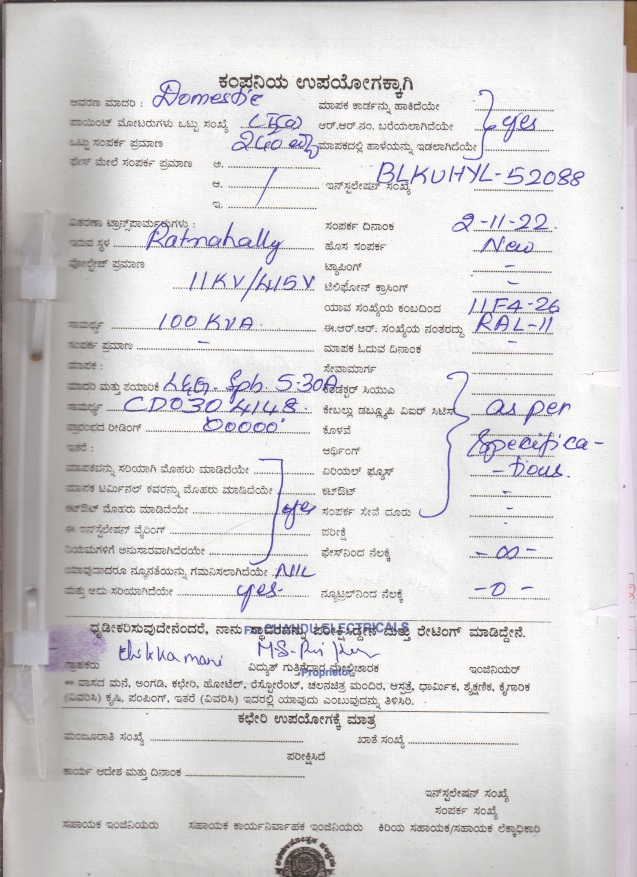 ಕಂಪನಿಯ ಉಪಯೋಗಕ್ಕಾಗಿ
ಆವರಣ ಮಾದರಿ : Domestic ಮಾಪಕ ಕಾರ್ಡನ್ನು ಹಾಕಿದೆಯೇ
ಪಾಯಿಂಟ್ ಮೋಟರುಗಳು ಒಟ್ಟು ಸಂಖ್ಯೆ ಆರ್.ಆರ್.ನಂ. ಬರೆಯಲಾಗಿದೆಯೇ yes
ಒಟ್ಟು ಸಂಪರ್ಕ ಪ್ರಮಾಣ ಮಾಪಕದಲ್ಲಿ ಹಾಳೆಯನ್ನು ಇಡಲಾಗಿದೆಯೇ
ಫೇಸ್ ಮೇಲೆ ಸಂಪರ್ಕ ಪ್ರಮಾಣ ಅ.
ಆ. ಇನ್‌ಸ್ಟಲೇಷನ್ ಸಂಖ್ಯೆ BLKUHYL-52088
ಇ.
ವಿತರಣಾ ಟ್ರಾನ್ಸ್‌ಫಾರ್ಮರುಗಳು : ಸಂಪರ್ಕ ದಿನಾಂಕ 2-11-22
ಇರುವ ಸ್ಥಳ Ratnahally ಹೊಸ ಸಂಪರ್ಕ New
ವೋಲ್ಟೇಜ್ ಪ್ರಮಾಣ ಟ್ಯಾಪಿಂಗ್ -
11KV/415V ಟೆಲಿಫೋನ್ ಕ್ರಾಸಿಂಗ್ -
ಯಾವ ಸಂಖ್ಯೆಯ ಕಂಬದಿಂದ 11F4-26
ಸಾಮರ್ಥ್ಯ 100 KVA ಈ.ಆರ್.ಆರ್. ಸಂಖ್ಯೆಯ ನಂತರದ್ದು RAL-11
ಸಂಪರ್ಕ ಪ್ರಮಾಣ - ಮಾಪಕ ಓದುವ ದಿನಾಂಕ -
ಮಾಪಕ : ಸೇವಾಮಾರ್ಗ
ಮಾದರಿ ಮತ್ತು ತಯಾರಿಕೆ 5-30A ಕಂಡಕ್ಟರ್ ಸಿಯುಎ
ಸಾಮರ್ಥ್ಯ CD0304148 ಕೇಬಲ್ಲು ಡಬ್ಲ್ಯೂಪಿ ವಿಐರ್ ಸಿಟಿಸ್ as per
ಪ್ರಾರಂಭದ ರೀಡಿಂಗ್ 00000 ಕೊಳವೆ
ಇತರೆ : ಅರ್ಥಿಂಗ್ Specifica-
ಮಾಪಕವನ್ನು ಸರಿಯಾಗಿ ಮೊಹರು ಮಾಡಿದೆಯೇ ಏರಿಯಲ್ ಫ್ಯೂಸ್ -tions.
ಮಾಪಕ ಟರ್ಮಿನಲ್ ಕವರನ್ನು ಮೊಹರು ಮಾಡಿದೆಯೇ ಕಟ್‌ಔಟ್ -
ಕಟ್‌ಔಟ್ ಮೊಹರು ಮಾಡಿದೆಯೇ yes ಸಂಪರ್ಕ ಸೇವೆ ದೂರು -
ಈ ಇನ್‌ಸ್ಟಲೇಷನ್ ವೈರಿಂಗ್ ಪರೀಕ್ಷೆ -
ನಿಯಮಗಳಿಗೆ ಅನುಸಾರವಾಗಿದೆಯೇ ಫೇಸ್‌ನಿಂದ ನೆಲಕ್ಕೆ -∞-
ಯಾವುದಾದರೂ ನ್ಯೂನತೆಯನ್ನು ಗಮನಿಸಲಾಗಿದೆಯೇ NIL
ಮತ್ತು ಅದು ಸರಿಯಾಗಿದೆಯೇ yes- ನ್ಯೂಟ್ರಲ್‌ನಿಂದ ನೆಲಕ್ಕೆ -0-
ಧೃಡೀಕರಿಸುವುದೇನೆಂದರೆ, ನಾನು ಸ್ಥಾವರವನ್ನು ಪರೀಕ್ಷಿಸಿದ್ದೇನೆ ಮತ್ತು ರೇಟಿಂಗ್ ಮಾಡಿದ್ದೇನೆ.
CHANDU ELECTRICALS
Chikkamani
ಗ್ರಾಹಕರು ವಿದ್ಯುತ್ ಗುತ್ತಿಗೆದಾರ ಮೇಲ್ವಿಚಾರಕ ಇಂಜಿನಿಯರ್
Proprietor
== ವಾಸದ ಮನೆ, ಅಂಗಡಿ, ಕಛೇರಿ, ಹೋಟೆಲ್, ರೆಸ್ಟೋರೆಂಟ್, ಚಲನಚಿತ್ರ ಮಂದಿರ, ಆಸ್ಪತ್ರೆ, ಧಾರ್ಮಿಕ, ಶೈಕ್ಷಣಿಕ, ಕೈಗಾರಿಕೆ
(ವಿವರಿಸಿ) ಕೃಷಿ, ಪಂಪಿಂಗ್, ಇತರೆ (ವಿವರಿಸಿ) ಇದರಲ್ಲಿ ಯಾವುದು ಎಂಬುವುದನ್ನು ತಿಳಿಸಿರಿ.
ಕಛೇರಿ ಉಪಯೋಗಕ್ಕೆ ಮಾತ್ರ
ಮಂಜೂರಾತಿ ಸಂಖ್ಯೆ ಖಾತೆ ಸಂಖ್ಯೆ
ಪರೀಕ್ಷಿಸಿದೆ
ಕಾರ್ಯ ಆದೇಶ ಮತ್ತು ದಿನಾಂಕ
ಇನ್‌ಸ್ಟಲೇಷನ್ ಸಂಖ್ಯೆ
ಸಂಪರ್ಕ ಸಂಖ್ಯೆ
ಸಹಾಯಕ ಇಂಜಿನಿಯರು ಸಹಾಯಕ ಕಾರ್ಯನಿರ್ವಾಹಕ ಇಂಜಿನಿಯರು ಕಿರಿಯ ಸಹಾಯಕ/ಸಹಾಯಕ ಲೆಕ್ಕಾಧಿಕಾರಿ